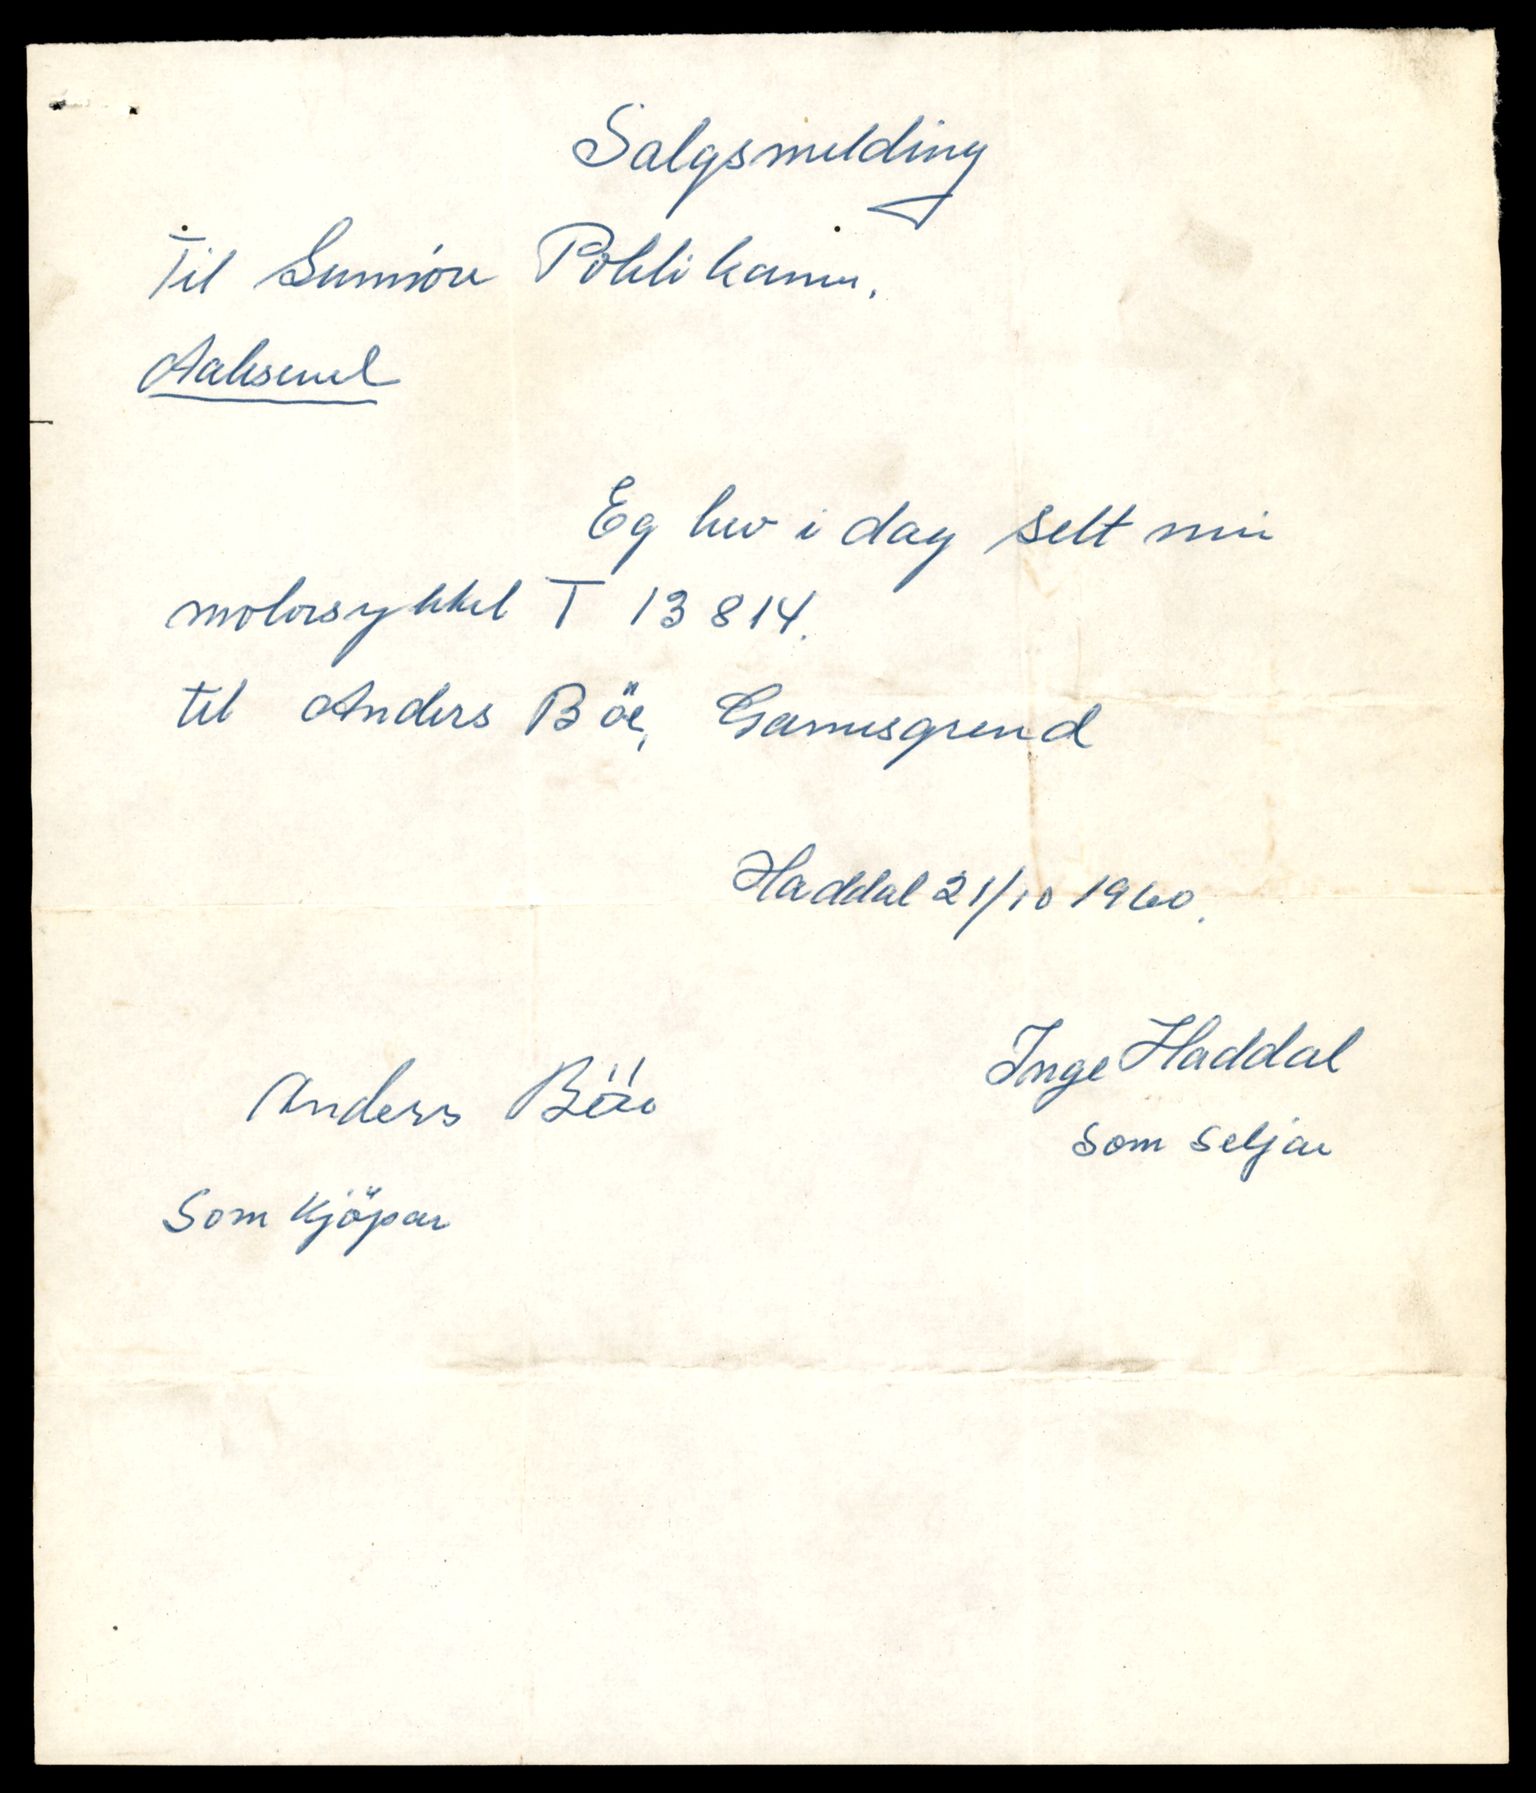 Salgsmelding
Til Sunnöre Politikamer.
Aalesund
Eg hev i dag selt min
motorsykkel T 13814.
til Anders Böe, Gamesgrend
Haddal 21/10 1960.
Inge Haddal
som seljar
Anders Böe
Som Kjöpar